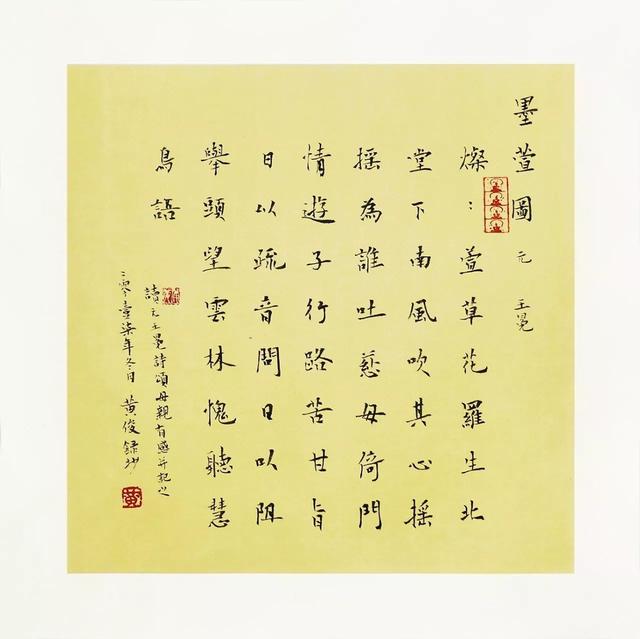 墨萱圖 元 王冕
燦〻萱草花羅生北
堂下南風吹其心搖
搖為誰吐慈母倚門
情遊子行路苦甘旨
日以疏音問日以阻
舉頭望雲林愧聽慧
鳥語
讀元王冕詩頌母親有感并記之
二零壹柒年冬日 黃俊録抄
黃